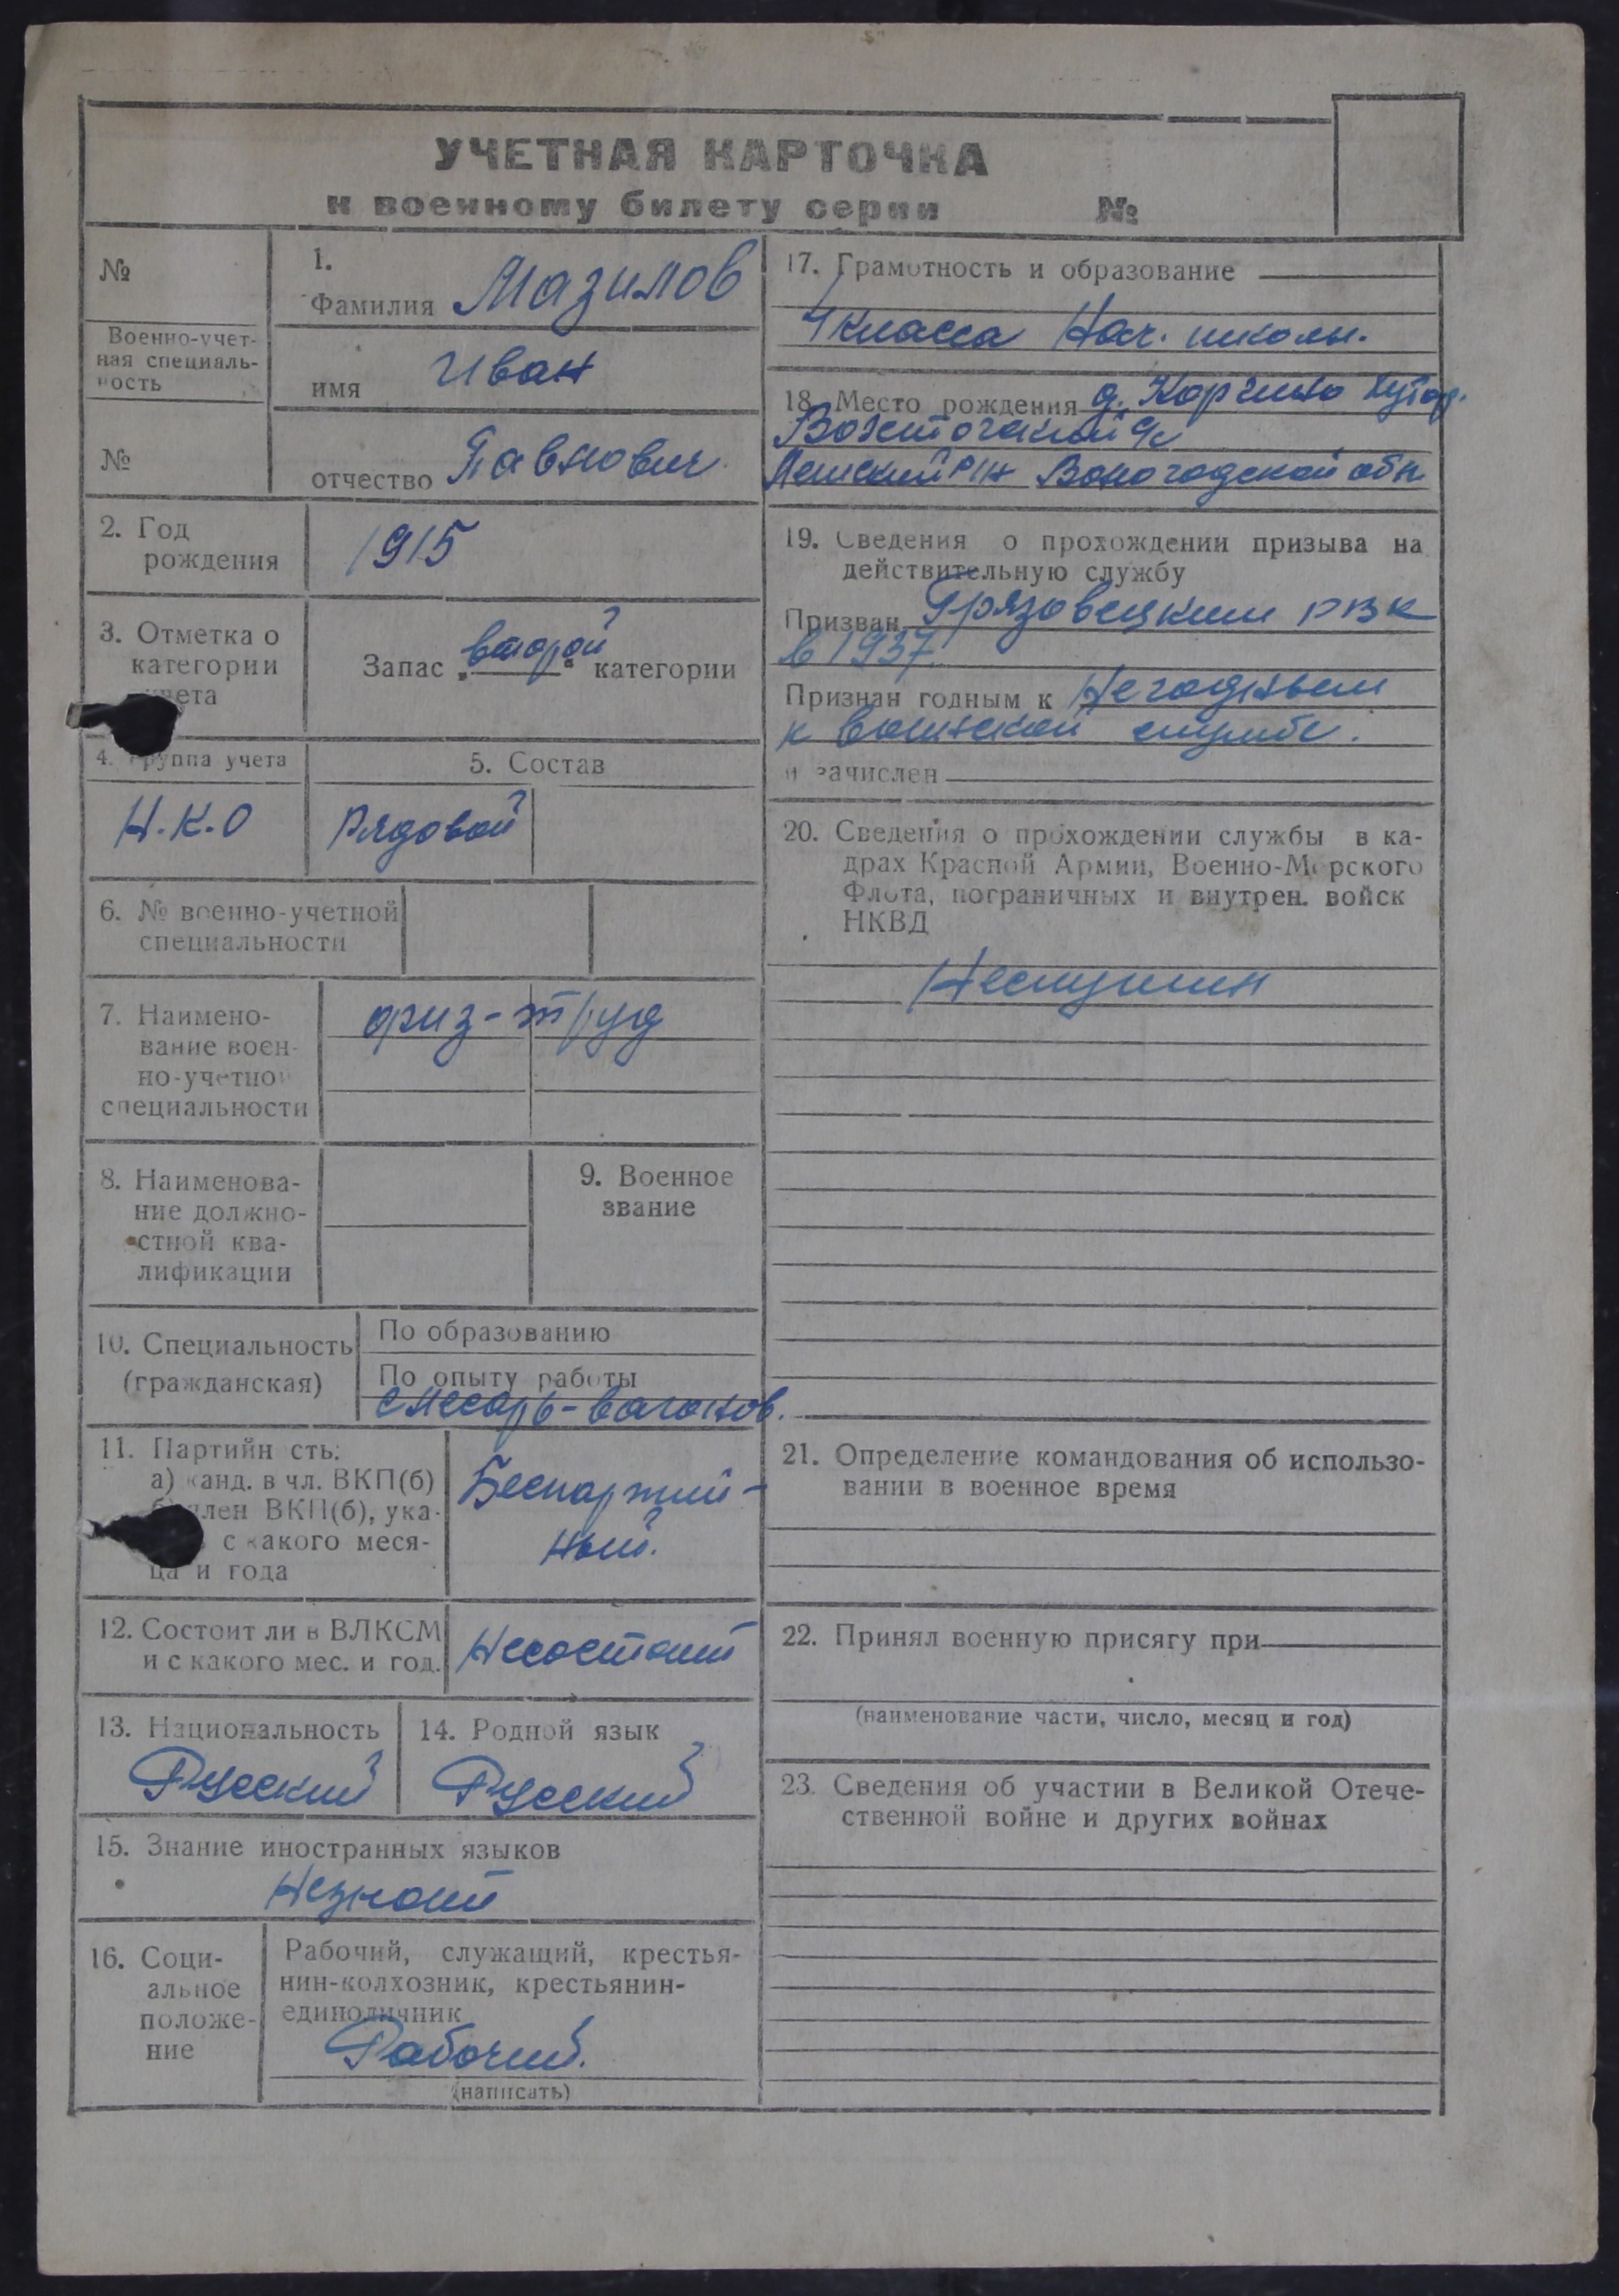 УЧЕТНАЯ КАРТОЧКА
к военному билету серии №
№
Военно-учет-
ная специаль-
ность
№
1.
Фамилия Мазилов
имя Иван
отчество Павлович
2. Год
рождения
1915
3. Отметка о
категории
учета
Запас „второй“ категории
4. Группа учета
Н.К.О
5. Состав
Рядовой
6. № военно-учетной
специальности
7. Наимено-
вание воен-
но-учетной
специальности
физ-труд
8. Наименова-
ние должно-
стной ква-
лификации
9. Военное
звание
10. Специальность
(гражданская)
По образованию
По опыту работы
слесарь-вагонов.
11. Партийн сть:
а) канд. в чл. ВКП(б)
б) член ВКП(б), ука-
с какого меся-
ца и года
Беспартий-
ный.
12. Состоит ли в ВЛКСМ
и с какого мес. и год.
Несостоит
13. Национальность
Русский
14. Родной язык
Русский
15. Знание иностранных языков
Незнает
16. Соци-
альное
положе-
ние
Рабочий, служащий, крестья-
нин-колхозник, крестьянин-
единоличник
Рабочий.
(написать)
17. Грамотность и образование
4 класса Нач. школы.
18. Место рождения д.
с/с
р/н Вологодской обл
19. Сведения о прохождении призыва на
действительную службу
Призван Грязовецким РВК
в 1937.
Признан годным к Негодным
к воинской службе.
и зачислен
20. Сведения о прохождении службы в ка-
драх Красной Армии, Военно-Морского
Флота, пограничных и внутрен. войск
НКВД
Неслужил
21. Определение командования об использо-
вании в военное время
22. Принял военную присягу при
(наименование части, число, месяц и год)
23. Сведения об участии в Великой Отече-
ственной войне и других войнах